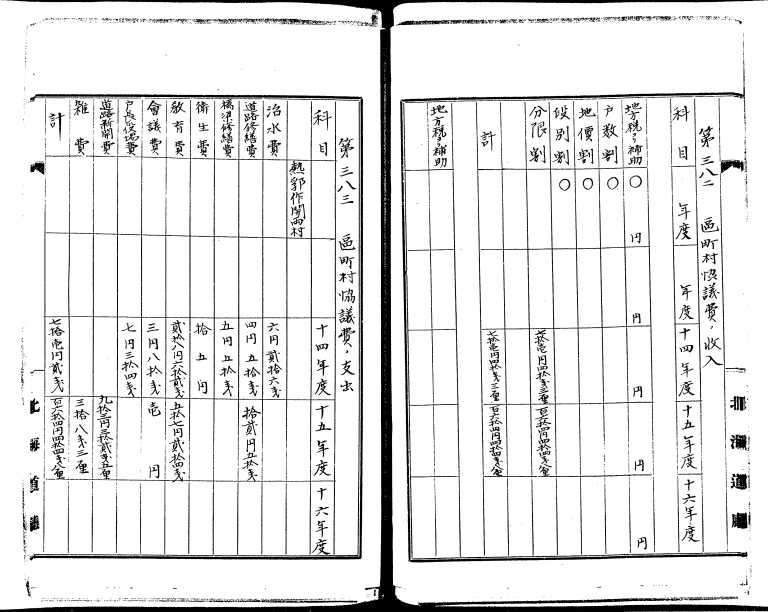 第三八二 區町村協議費ノ收入
科目 年度 年度 十四年度 十五年度 十六年度
地方税ノ補助 〇 円 円 円 円 円
戸数割 〇
地價割 〇
段別割 〇
分限割 七拾壱円四拾戔三厘 百六拾四円四拾四戔八厘
計 七拾壱円四拾戔三厘 百六拾四円四拾四戔八厘
地方税ノ補助
北海道廳
第三八三 區町村協議費ノ支出
科目 十四年度 十五年度 十六年度
熱郛作開両村
治水費 六円貳拾六戔
道路修繕費 四円五拾戔 拾貳円五拾戔
橋梁修繕費 五円五拾戔
衛生費 拾五円
教育費 貳拾八円六拾貳戔 五拾七円貳拾四戔
會議費 三円八拾戔 壱円
戸長役場費 七円三拾四戔
道路新開費 九拾三円三拾貳戔五厘
雑費 三拾八戔三厘
計 百六拾四円四拾四戔八厘
北海道廳